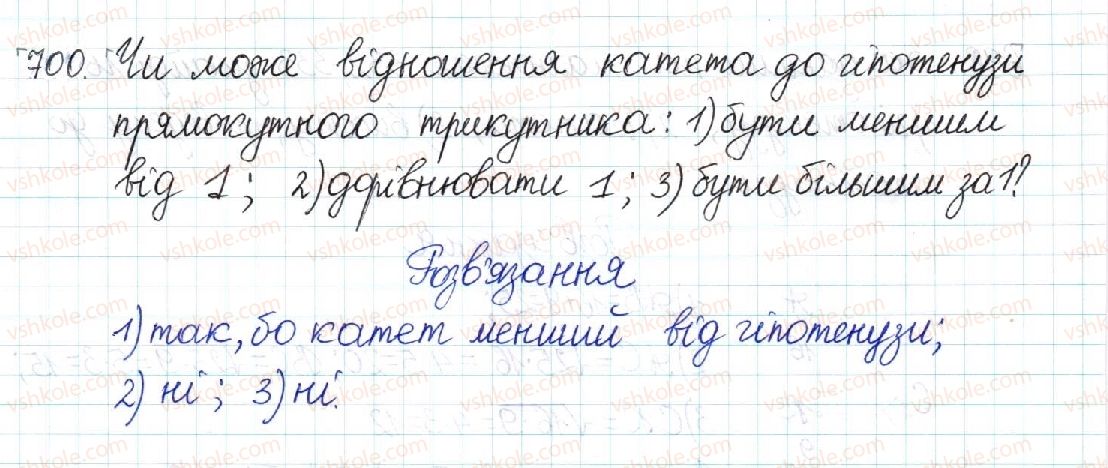 700. Чи може відношення катета до гіпотенузи
прямокутного трикутника: 1) бути меншим
від 1; 2) дорівнювати 1; 3) бути більшим за 1?
Розв'язання
1) так, бо катет менший від гіпотенузи;
2) ні; 3) ні.